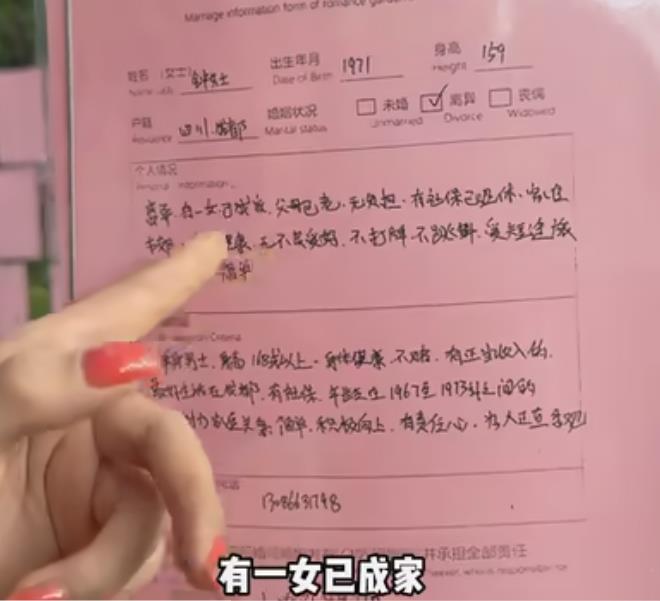 Marriage information form of romance garden
姓名（女士） 钟女士 出生年月 1971 身高 159
Date of Birth Height
户籍 四川.成都 婚姻状况 未婚 ✓ 离异 丧偶
Residence Marital status Unmarried Divorce Widowed
个人情况
Personal information
离异.有一女已成家.父母已老.无负担.有社保已退休.常住
成都. 健康.无不良爱好.不打牌.不跳舞.爱短途旅
简单
Criteria
男士.身高168以上.身体健康.不赌.有正当收入的.
生活在成都.有社保.年龄在1967至1973年之间的
家庭关系简单.积极向上.有责任心.为人正直
并承担全部责任
有一女已成家